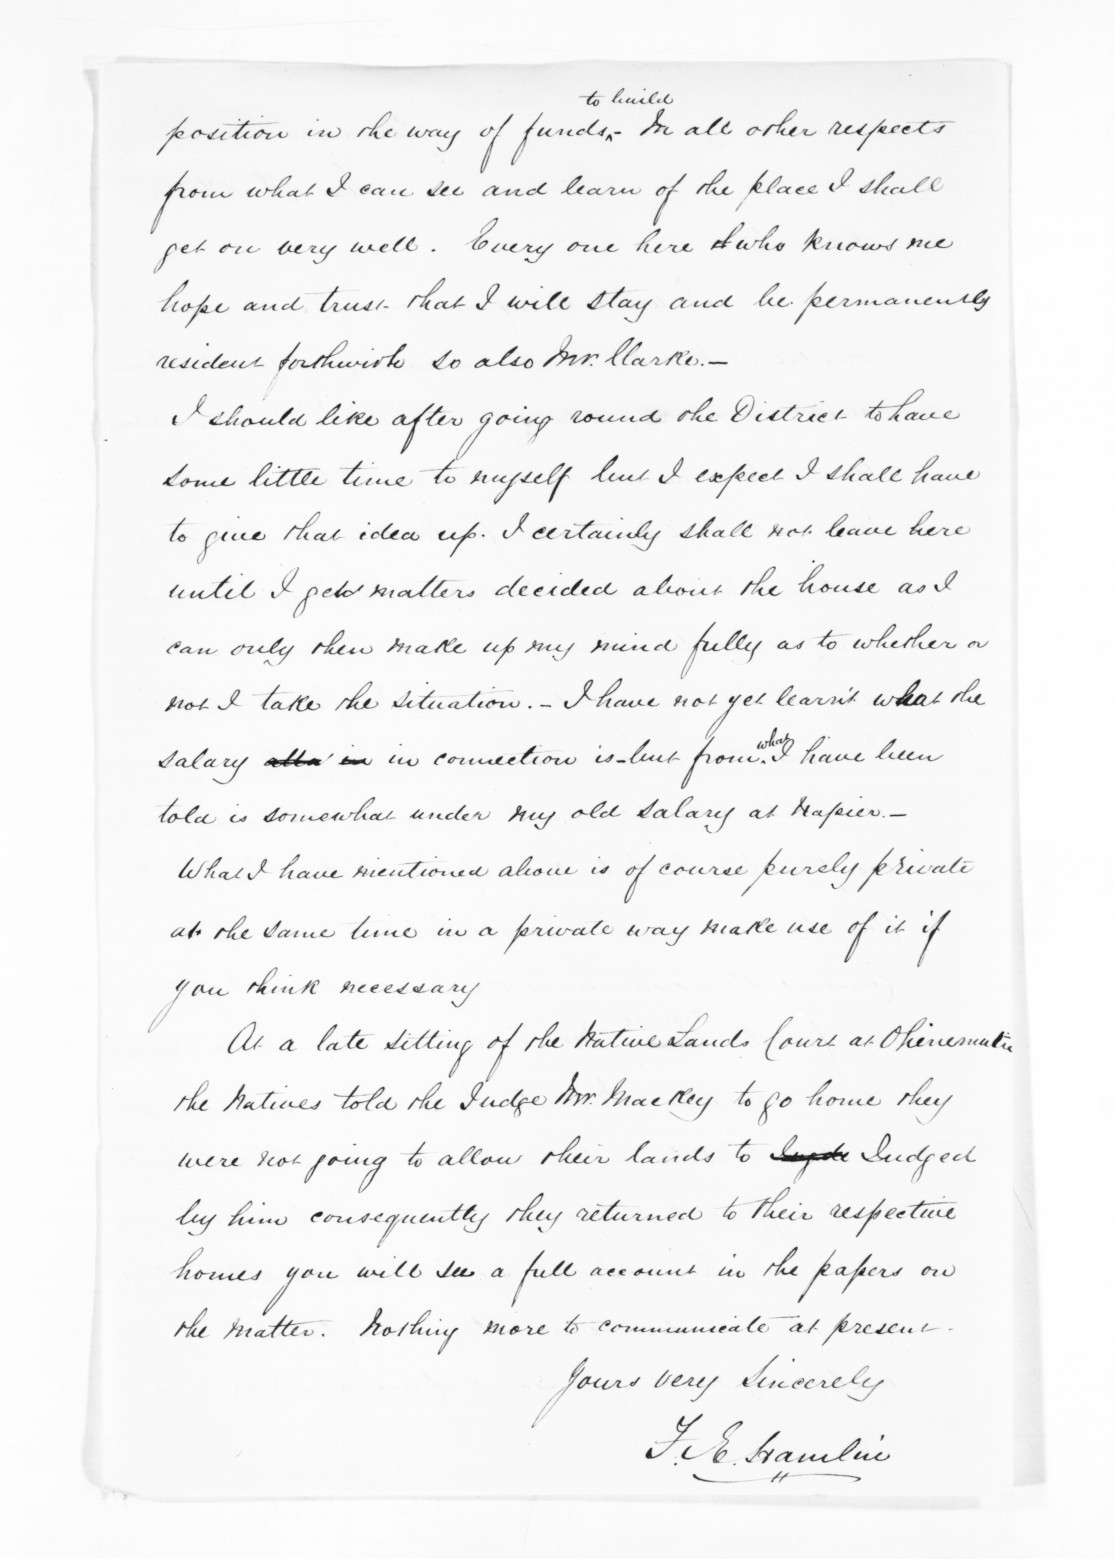 to build
position in the way of funds - In all other respects
from what I can see and learn of the place I shall
get on very well. Every one here who knows me
hope and trust that I will stay and be permanently
resident forthwith so also Mr. Clarke. —
I should like after going round the District to have
some little time to myself but I expect I shall have
to give that idea up. I certainly shall not leave here
until I get matters decided about the house as I
can only then make up my mind fully as to whether or
not I take the situation. — I have not yet learnt what the
what
salary in connection is - but from I have been
told is somewhat under my old salary at Napier. —
What I have mentioned above is of course purely private
at the same time in a private way make use of it if
you think necessary
At a late sitting of the Native Lands Court at Ohinemutu
the Natives told the Judge Mr. Mackey to go home they
were not going to allow their lands to Judged
by him consequently they returned to their respective
homes you will see a full account in the papers on
the matter. Nothing more to communicate at present.
Yours very Sincerely
F. E. Hamlin